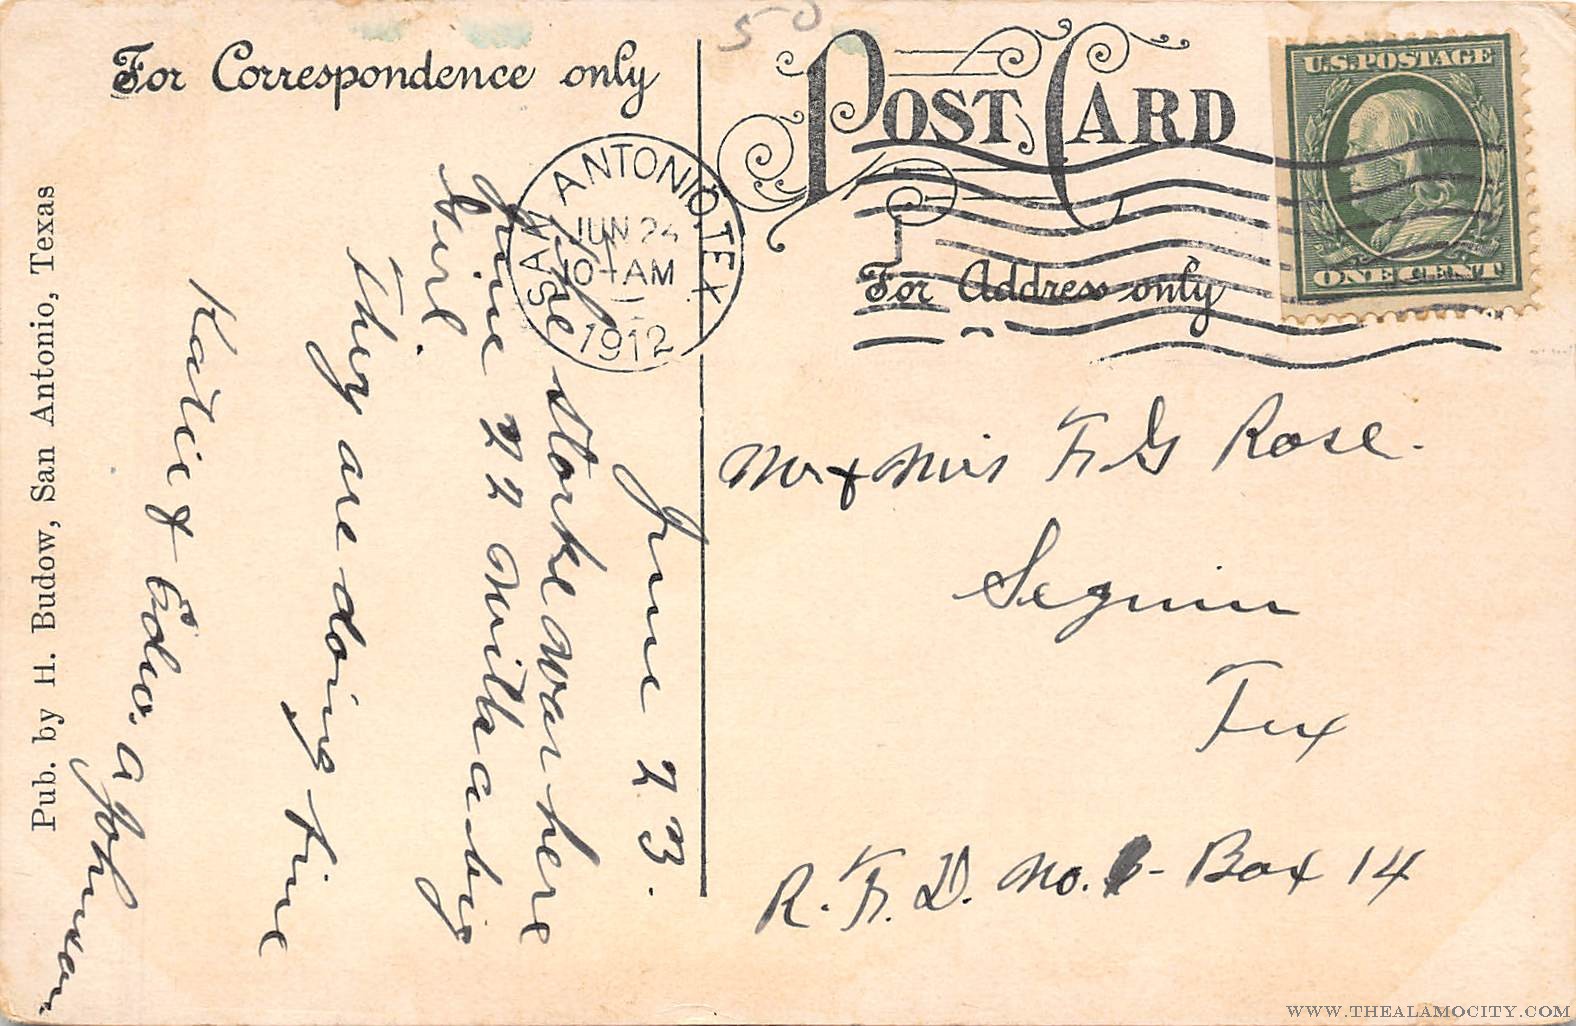 50
For Correspondence only
POST CARD
U.S.POSTAGE
ONE CENT
SAN ANTONIO, TEX.
JUN 24
AM
1912
For Address only
June 23.
The storke was here
June 22 with a big
Girl.
They are doing fine
Katie & Edw. A Johnson
Mr & Mrs F G Rose.
Seguin
Tex
R. F. D. No. - Box 14
Pub. by H. Budow, San Antonio, Texas
WWW.THEALAMOCITY.COM